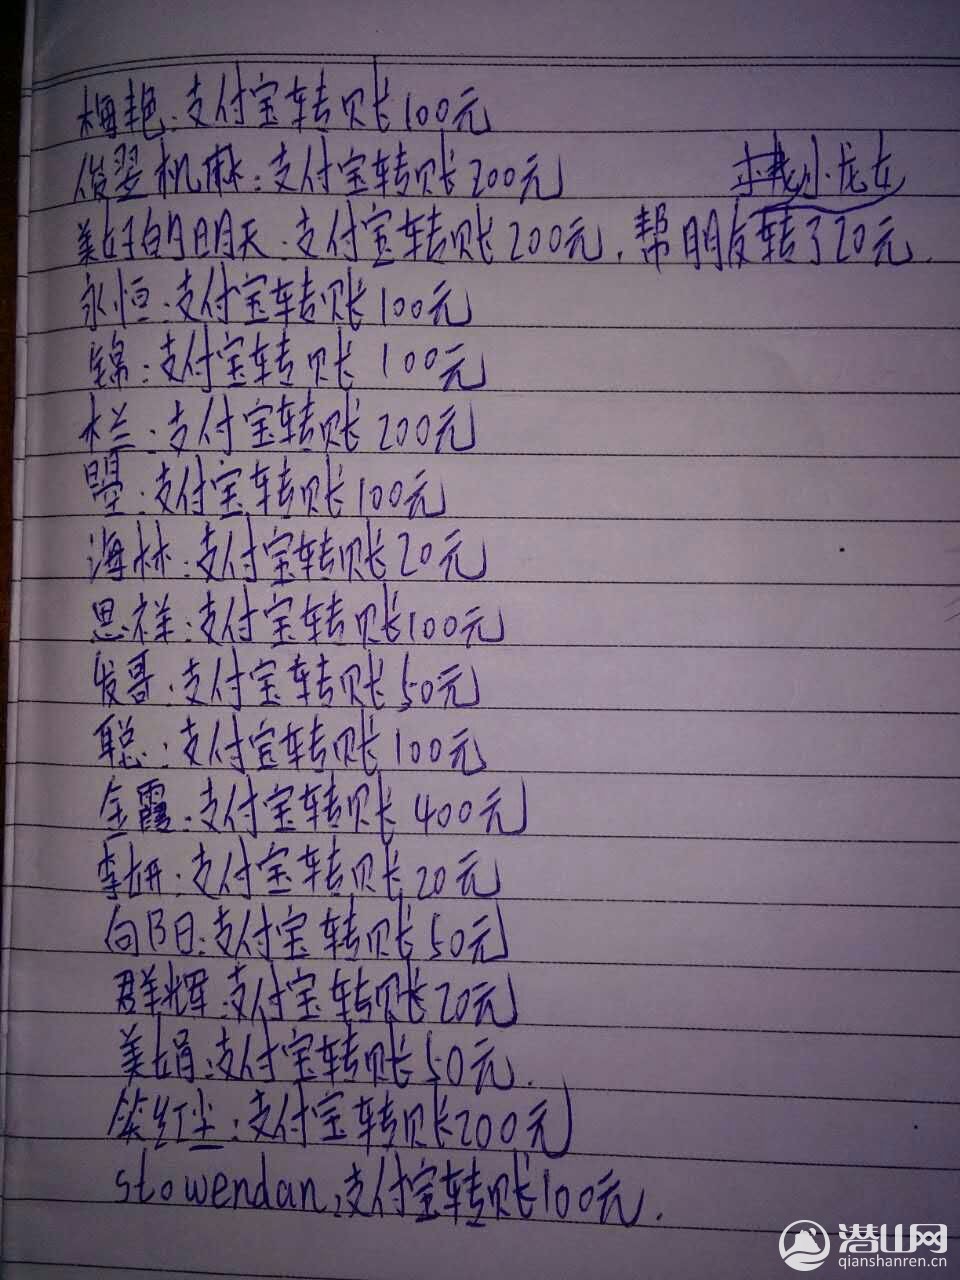 梅艳:支付宝转账100元
俊翌机麻:支付宝转账200元 小龙女
美好的明天:支付宝转账200元.帮朋友转了20元.
永恒:支付宝转账100元
锦:支付宝转账 100元
栏兰:支付宝转账200元
曌:支付宝转账100元
海林:支付宝转账20元
思祥:支付宝转账100元
发哥:支付宝转账50元
聪:支付宝转账100元
金霞:支付宝转账400元
李妍:支付宝转账20元
向日:支付宝转账50元
群辉:支付宝转账20元
美娟:支付宝转账50元.
笑红尘:支付宝转账200元
stowendan:支付宝转账100元.
潜山网
qianshanren.cn